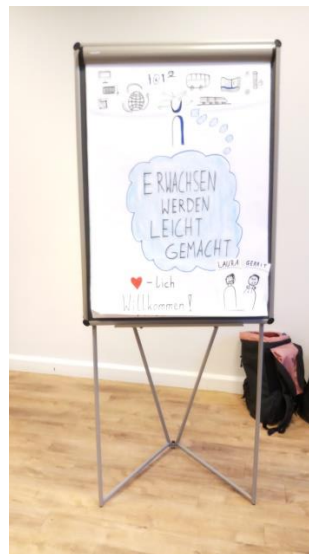 1012
ERWACHSEN
WERDEN
LEICHT
GEMACHT
LAURA
GERRIT
-lich
Willkommen!